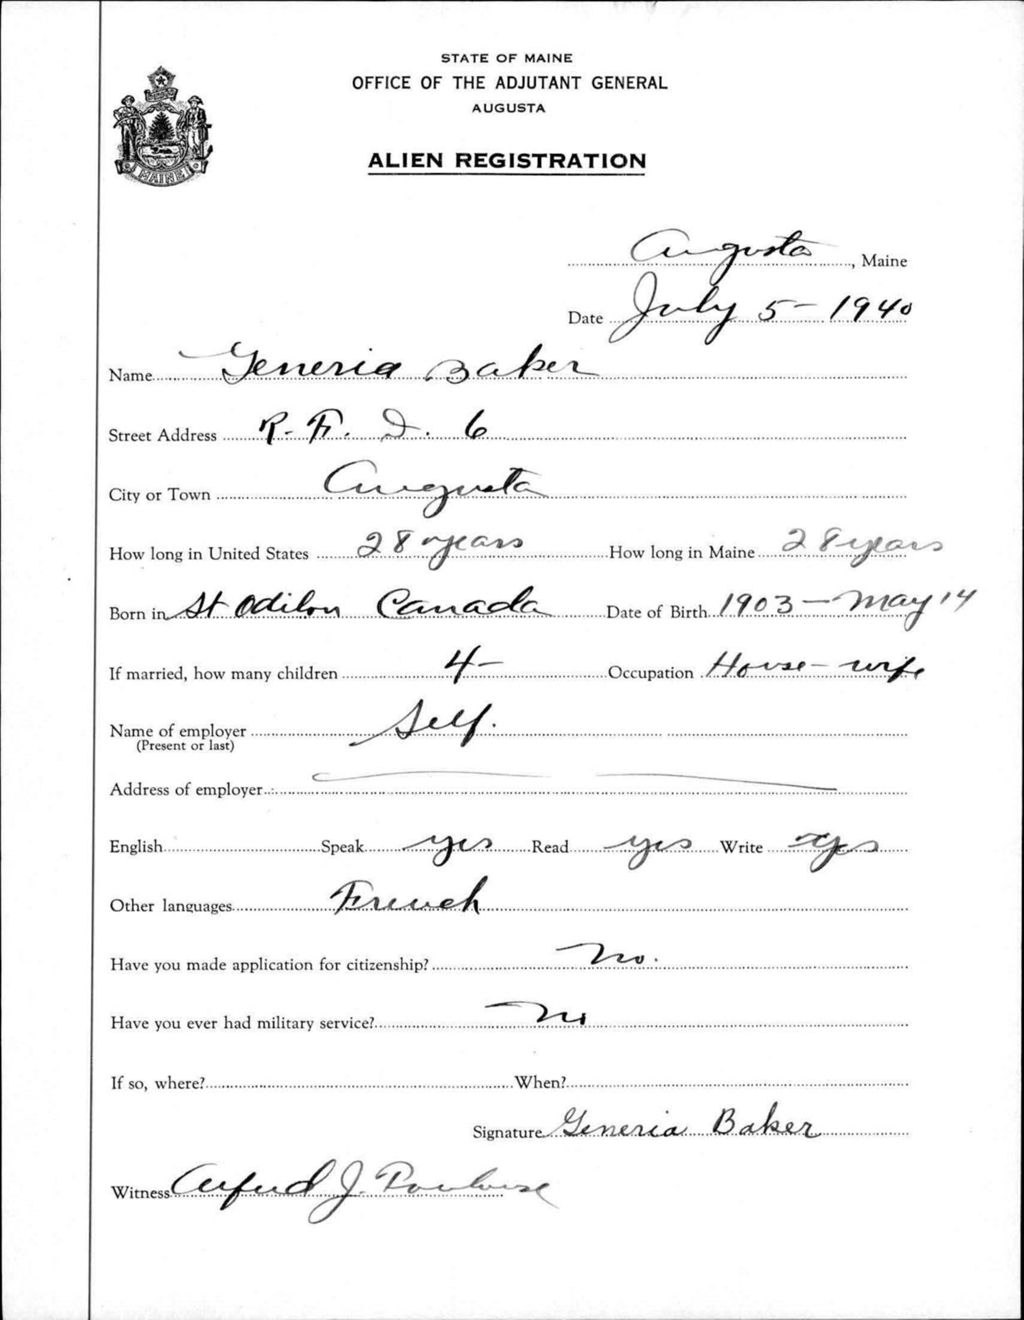 STATE OF MAINE
OFFICE OF THE ADJUTANT GENERAL
AUGUSTA
ALIEN REGISTRATION
MAINE
Augusta, Maine
Date July 5 - 1940
Name Generia Baker
Street Address R. F. D. 6
City or Town Augusta
How long in United States 28 years How long in Maine 28 years
Born in St Odilon Canada Date of Birth 1903 - May 14
If married, how many children 4 - Occupation House-wife
Name of employer Self.
(Present or last)
Address of employer
English Speak yes Read yes Write yes
Other languages French
Have you made application for citizenship? No.
Have you ever had military service? No
If so, where? When?
Signature Generia Baker
Witness Alfred J.